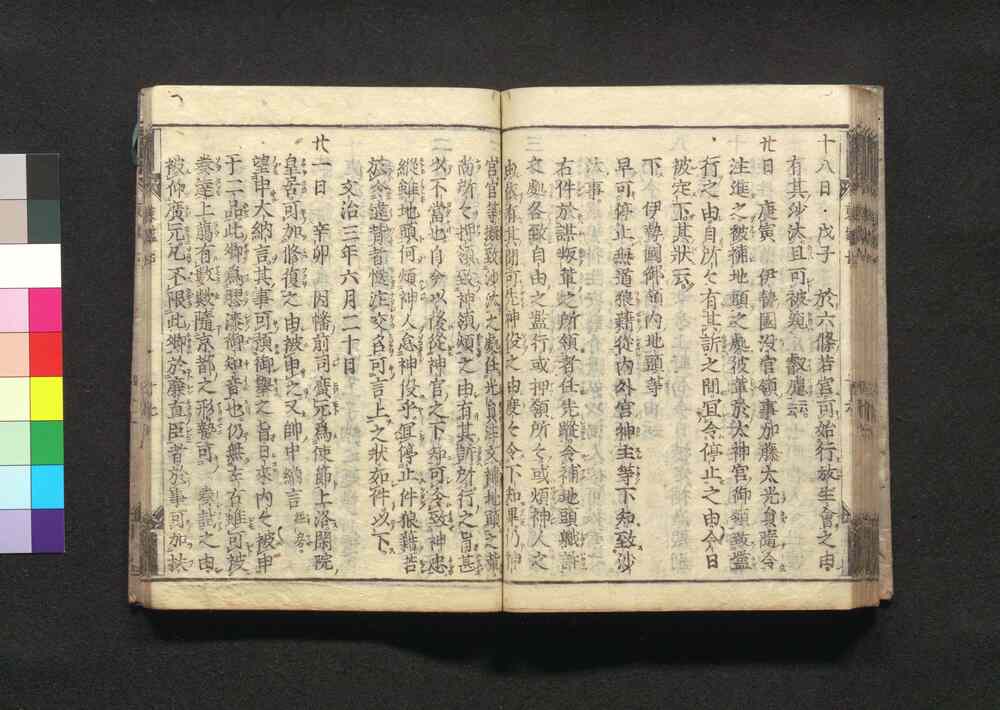 十八日戊子 於六條若宮可始行放生會之由
有其沙汰且可被窺叡慮云云
廿日庚寅 伊勢國沒官領事加藤太光員隨令
注進之被補地頭之處彼輩於太神宮御領致濫
行之由自所々有其訴之間宜令停止之由今日
被定下其狀云
下 伊勢國御領內地頭等
早可停止無道狼藉從內外宮神主等下知致沙
汰事
右件於謀叛輩之所領者任先蹤令補地頭職許
之處各致自由之濫行或押領所々或煩神人之
由依有其聞可先神役之由度々令下知畢仍神
官官等擬致沙汰之處任光員注文補地頭之輩
尚所々押領致神領煩之由有其訴所行之旨甚
以不當也自今以後從神官之下知可令致神忠
縱雖地頭何煩神人怠神役乎俱停止件狼藉若
於令違背者慥注交名可言上之狀如件以下
文治三年六月二十日
廿一日辛卯 因幡前司廣元爲使節上洛閑院
皇居可加修復之由被申之又帥中納言
望申大納言其事可預御擧之旨日來內々被申
于二品此卿爲
奏達上﨟有數歟隨京都之形勢可 奏試之由
被仰廣元凡不限此卿於廉直臣者於事可加扶